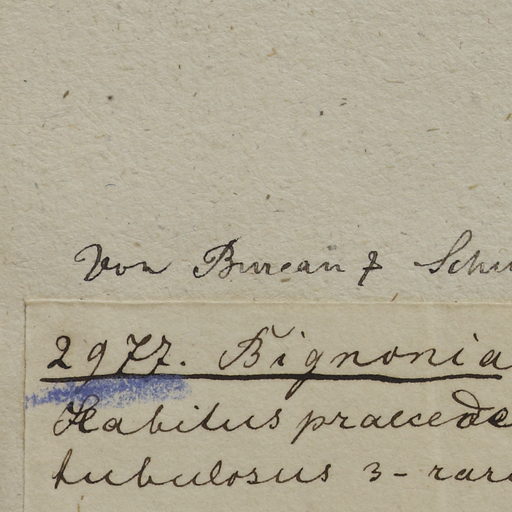 Von Bureau & Schu
2977. Bignonia
Habitus praecede
tubulosus 3-rar